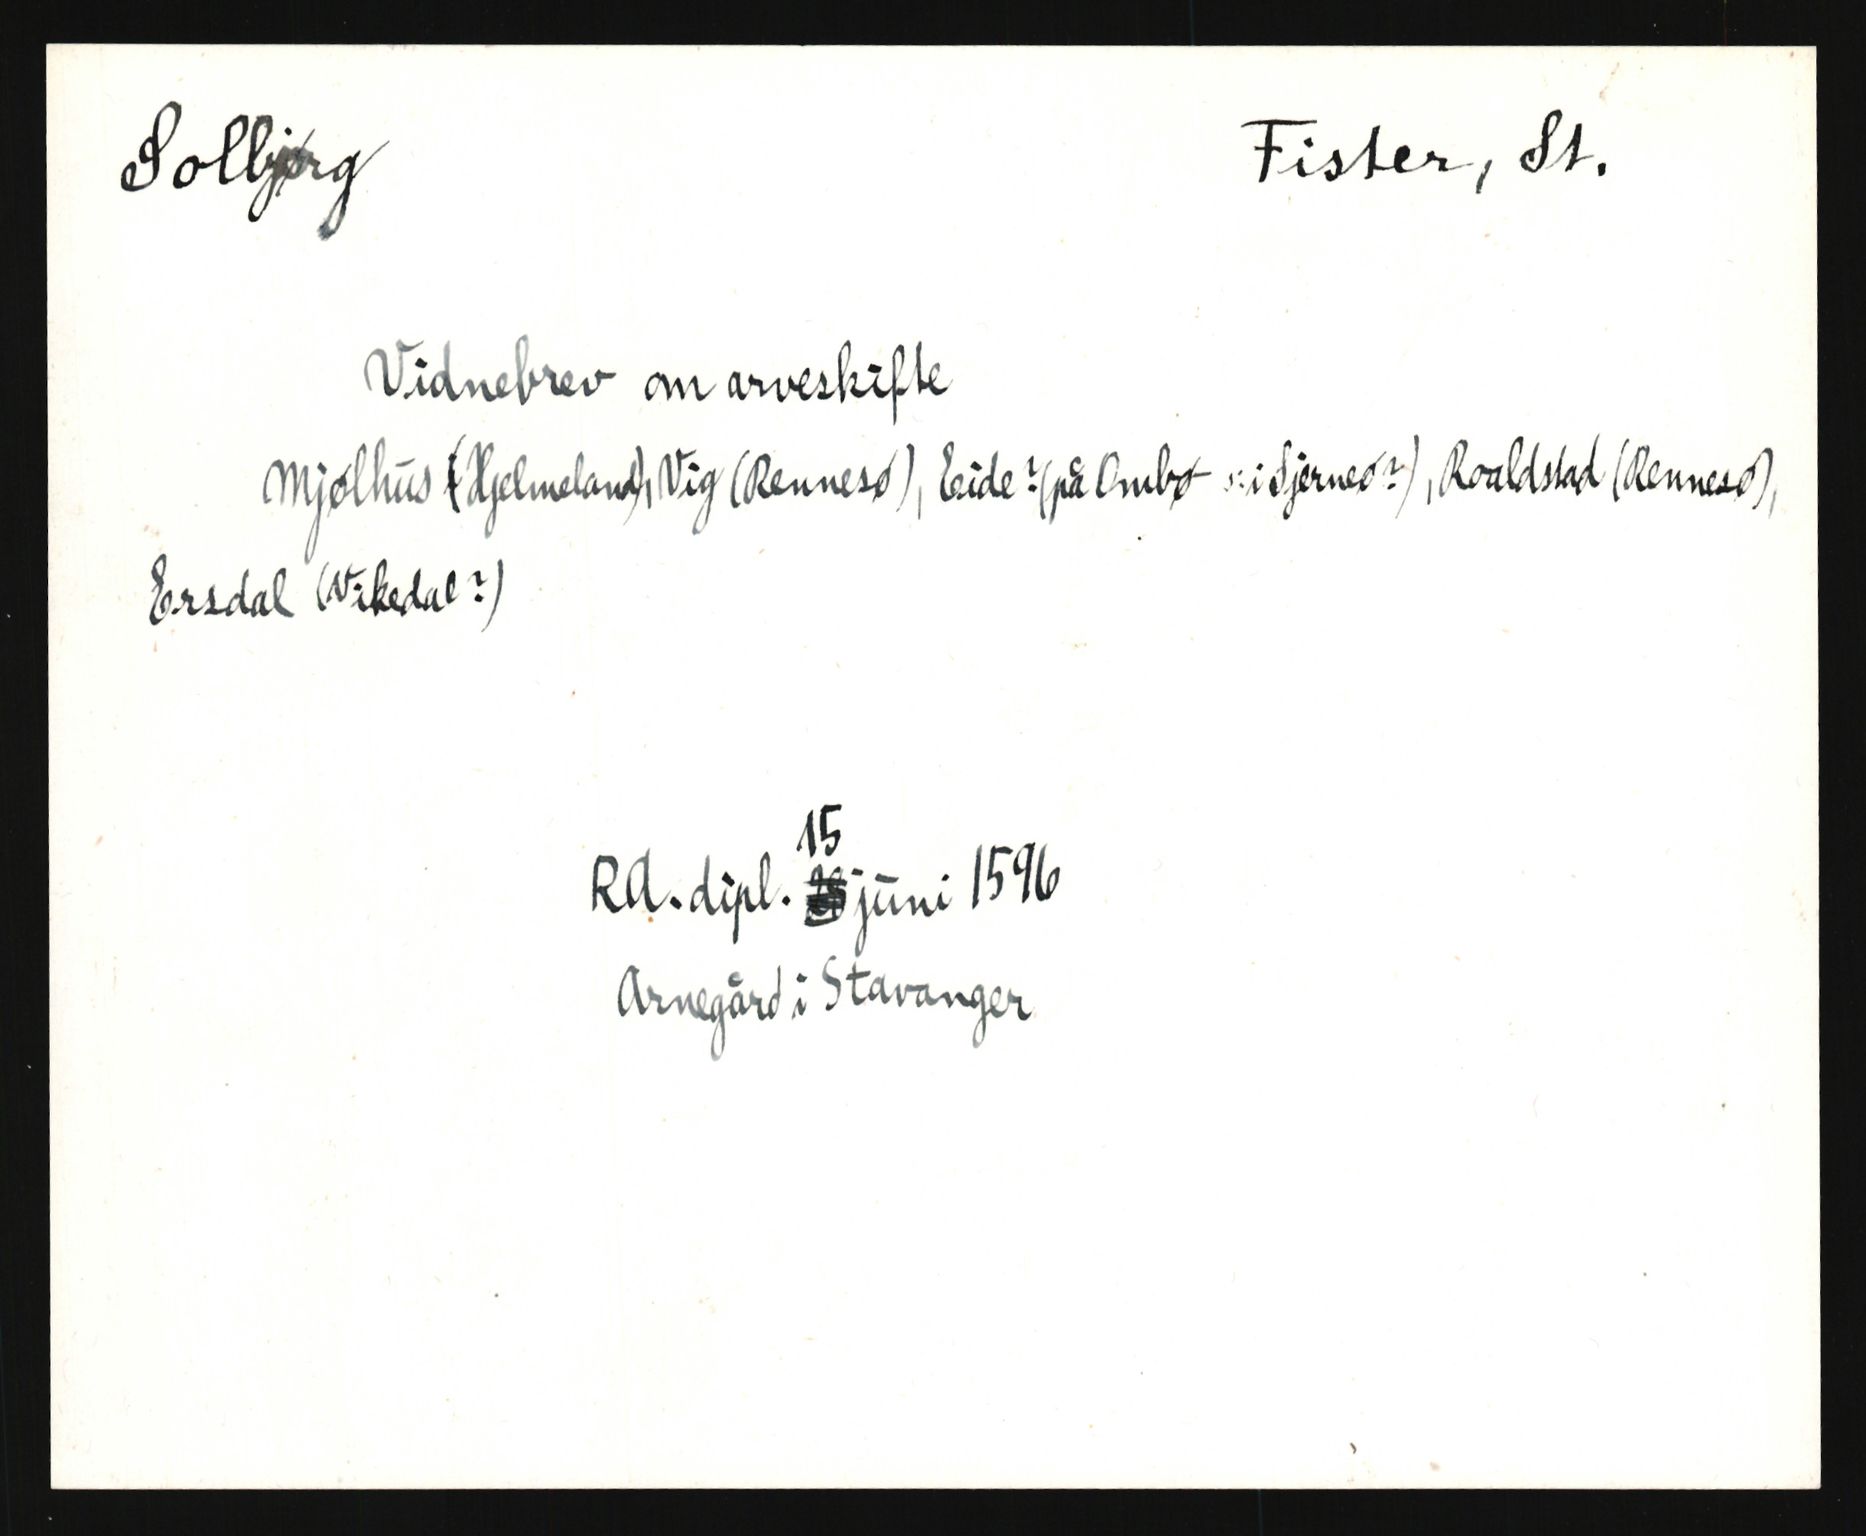 Solbjørg
Fister, St.
Vidnebrev om arveskifte
Mjølhus (Hjelmeland), Vig (Rennesø), Eide? (på Ombø i Sjernes?), Roaldstad (Rennesø),
Ersdal (Vikedal?)
15
RA. dipl. juni 1596
Arnegård i Stavanger